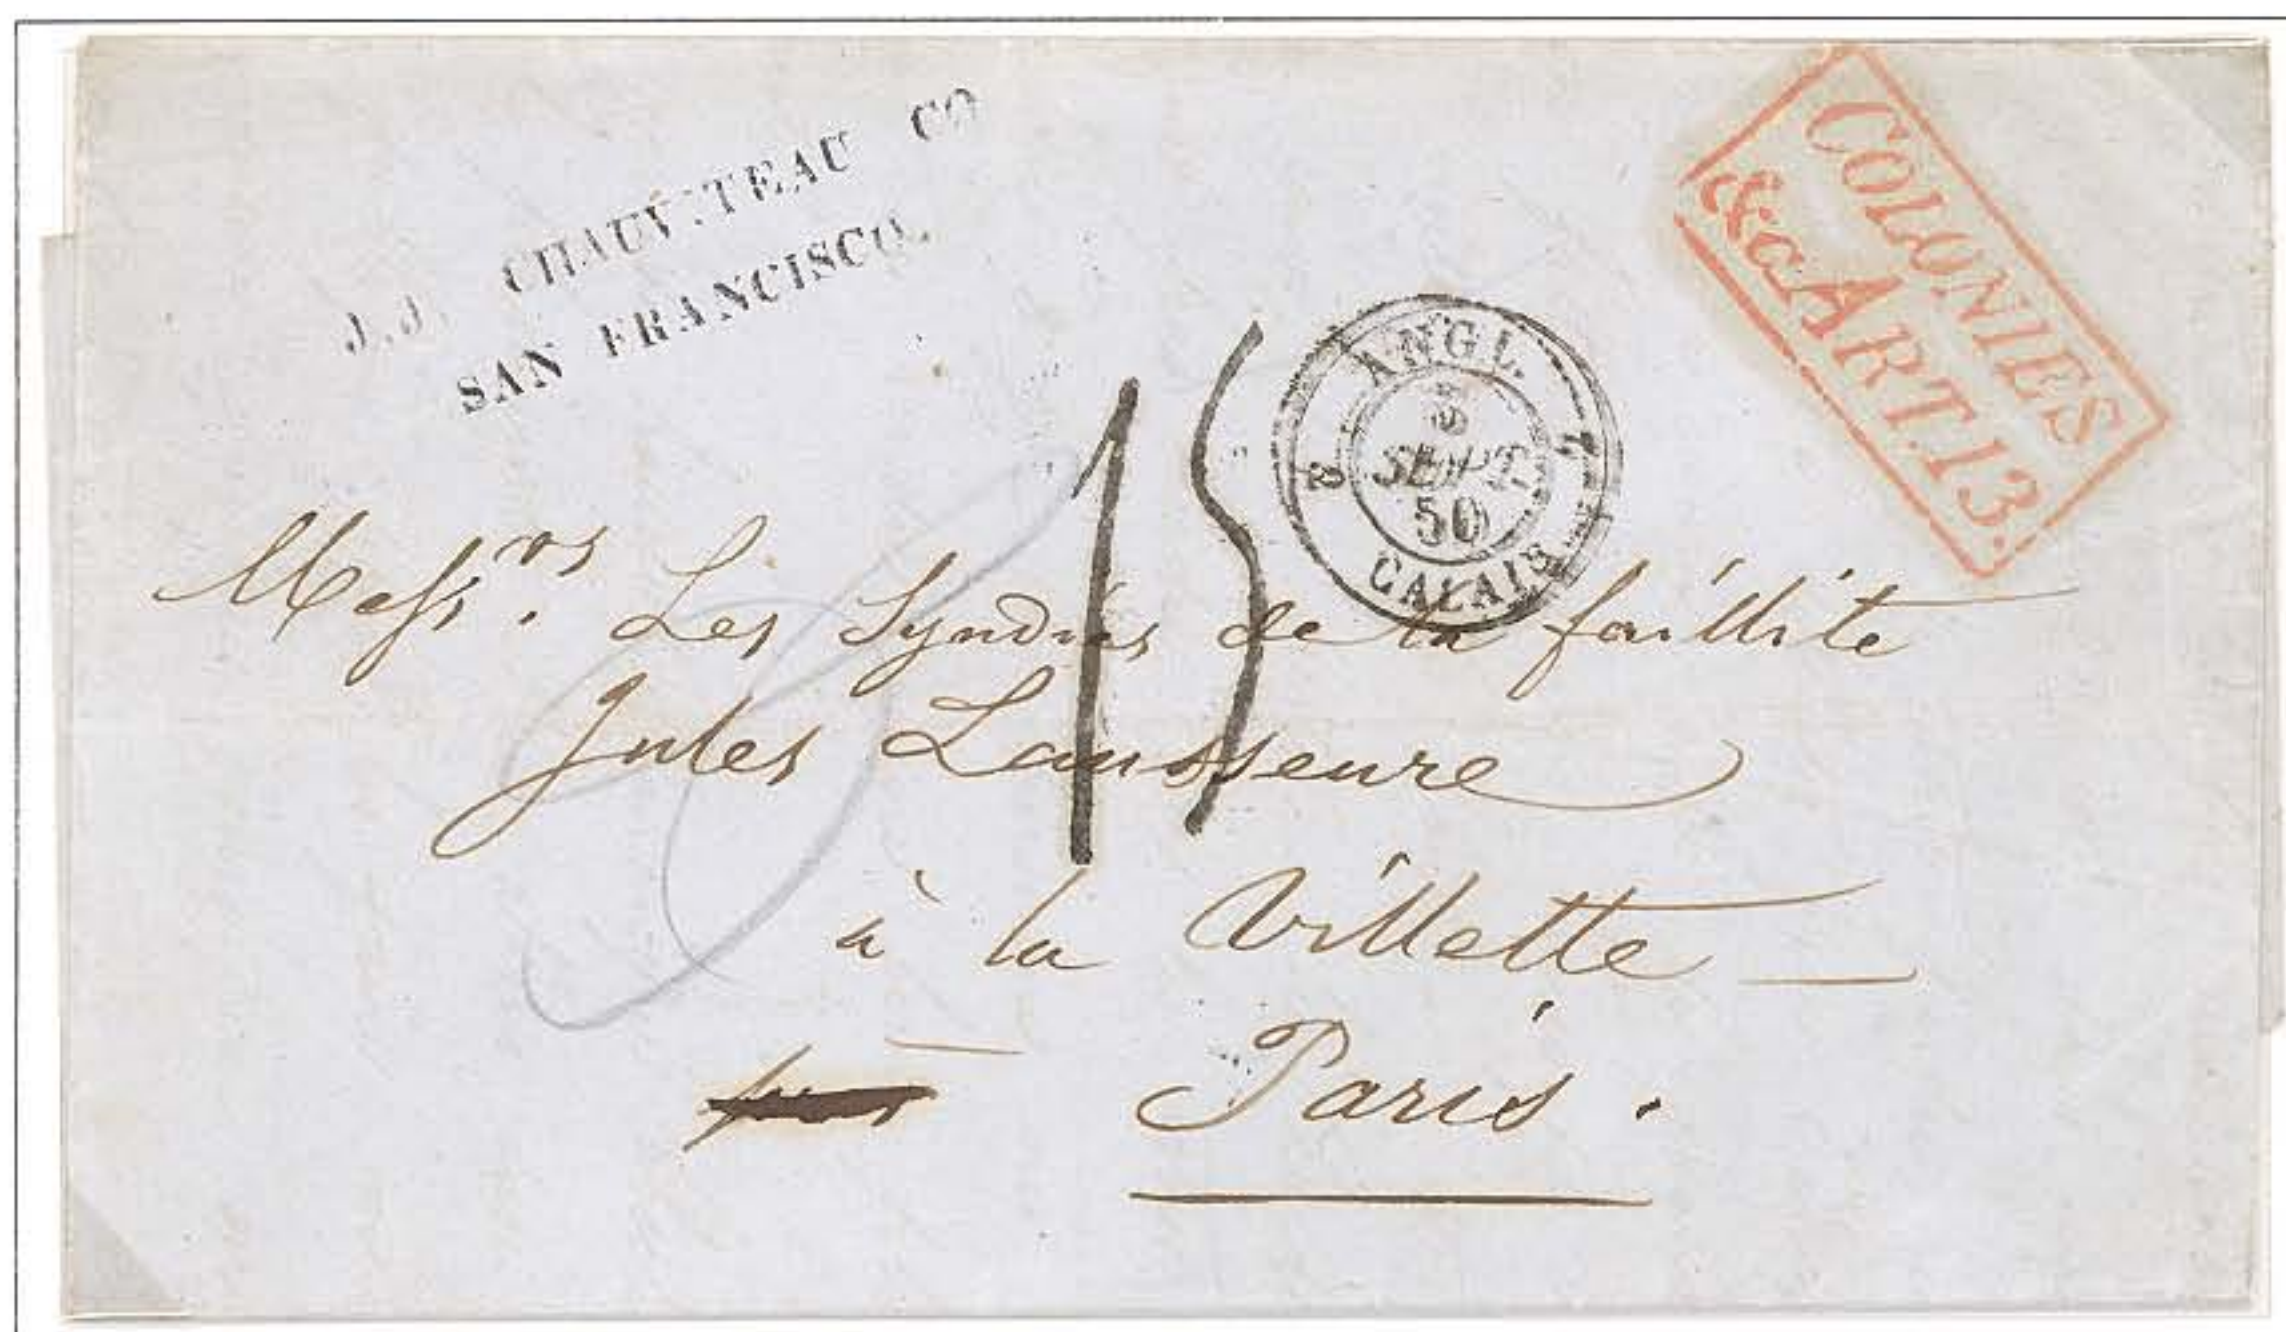 J.J. CHAUV.TEAU CO
SAN FRANCISCO.
COLONIES
&c ART.13.
ANGL.
SEPT.
50
CALAIS
2
2
15
Messrs. Les Syndics de la faillite
Jules Lausseure
à la Villette —
Paris.